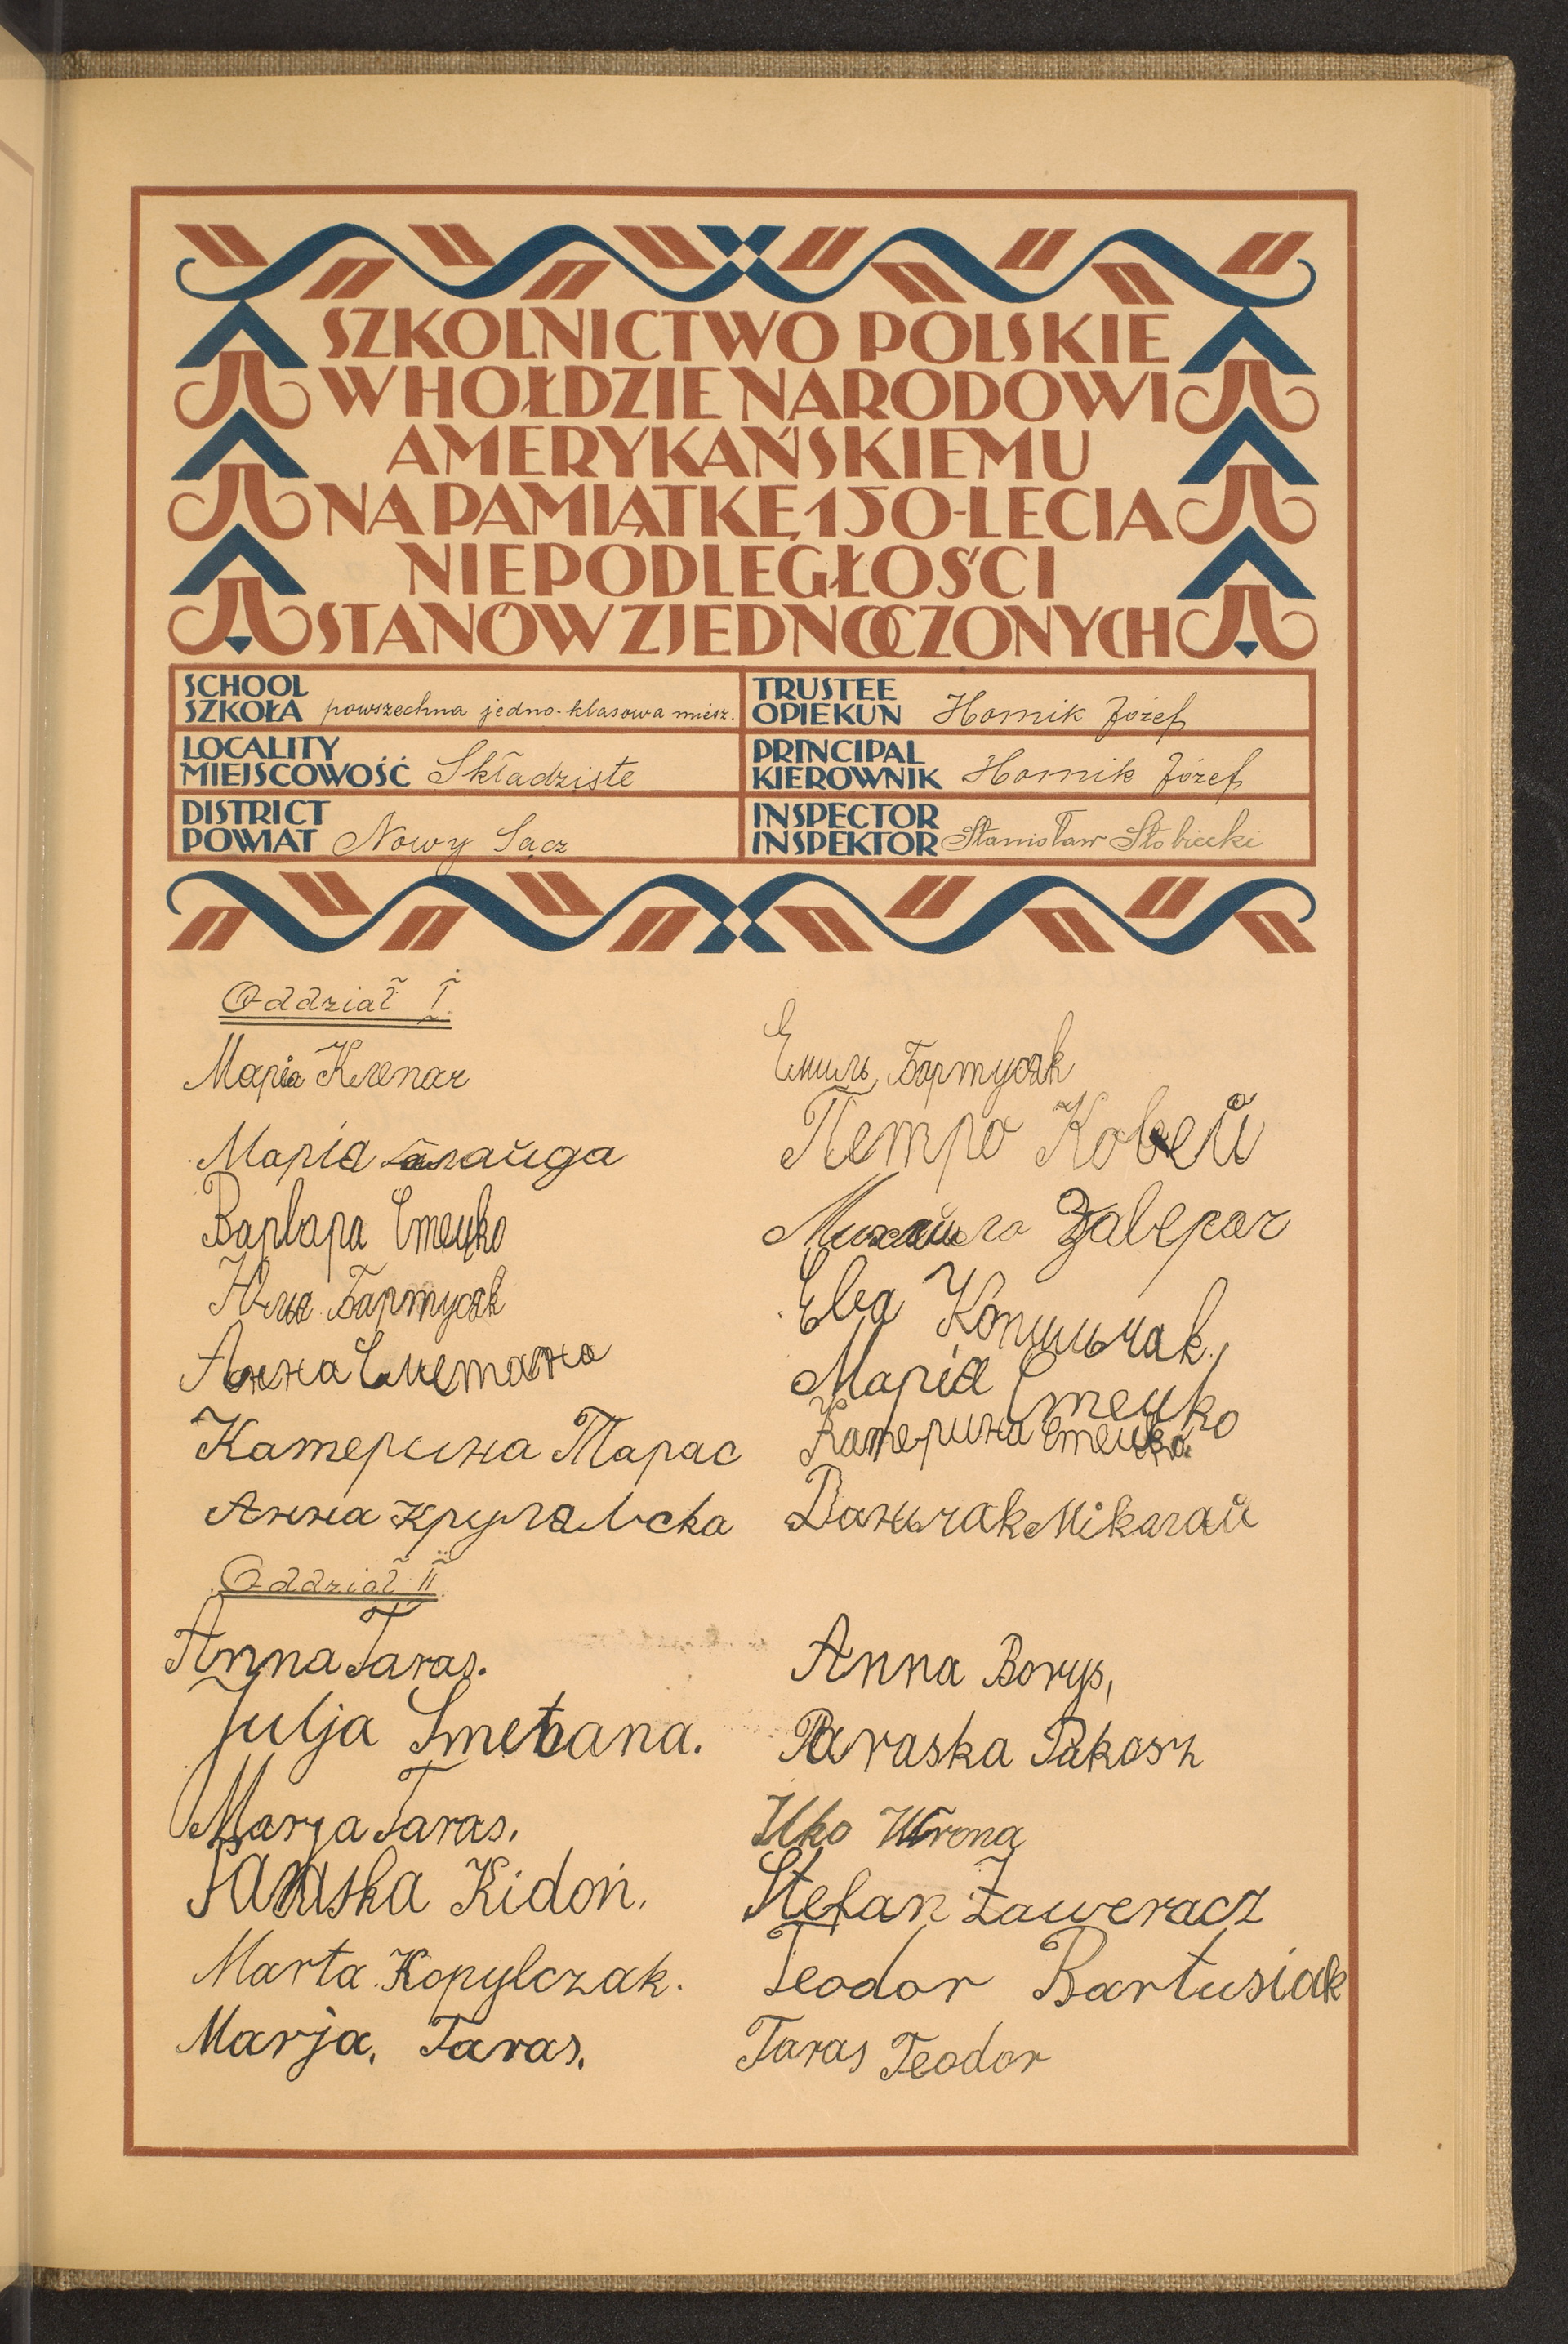 SZKOLNICTWO POLSKIE
W HOŁDZIE NARODOWI
AMERYKAŃSKIEMU
NA PAMIĄTKĘ 150-LECIA
NIEPODLEGŁOŚCI
STANÓW ZJEDNOCZONYCH
SCHOOL
SZKOŁA powszechna jedno-klasowa miesz.
TRUSTEE
OPIEKUN Hornik Józef
LOCALITY
MIEJSCOWOŚĆ Składziste
PRINCIPAL
KIEROWNIK Hornik Józef
DISTRICT
POWIAT Nowy Sącz
INSPECTOR
INSPEKTOR Stanisław Słobiecki
Oddział I.
Марія Клепач
Марія
Варвара Стецко
Юлья Бартусяк
Анна Сметана
Катерина Тарас
Анна
Емиль Бартусяк
Петро Ковей
Михайло Заверач
Ева Копильчак
Марія Стецко
Катерина Стецко
Ваньчак Міколай
Oddział II.
Anna Taras.
Julja Smetana.
Marja Taras.
Paraska Kidoń.
Marta Kopylczak.
Marja, Taras.
Anna Borys,
Paraska Pakosz
Ilko Wrona
Stefan Zaweracz
Teodor Bartusiak
Taras Teodor